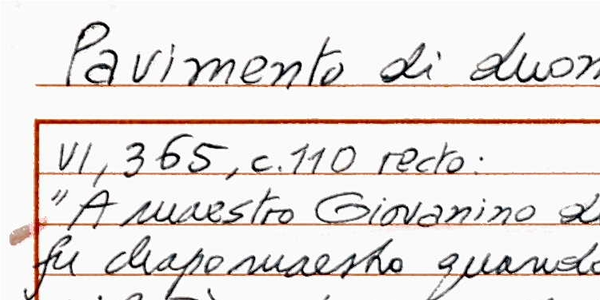 Pavimento di duom
VI, 365, c. 110 recto:
"A maestro Giovanino di
fu chapomaestro quando